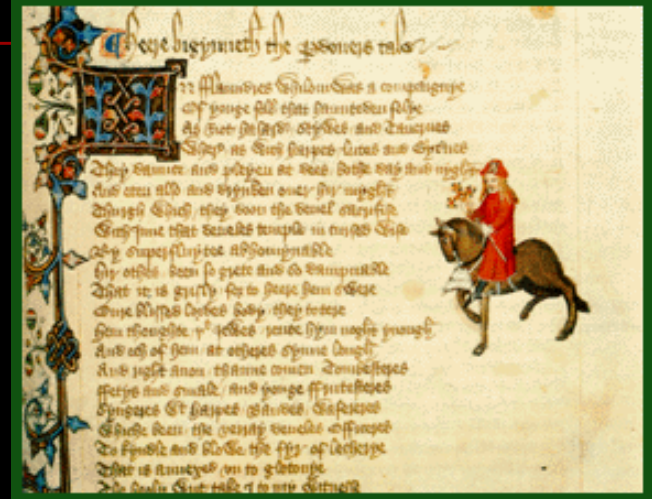 Heere bigynneth the ꝑdoners tale
IN fflaundres whilom was a compaignye
Of yonge folk that haunteden folye
As riot hasard stywes and Tauernes
Wher as with harpes lutes and Gyternes
They daunce and pleyen at dees bothe day and nyght
And eten also and drynken ouer hir myght
Thurgh which they doon the deuel sacrifise
With Inne that deueles temple in cursed wise
By superfluytee abhomynable
Hir othes been so grete and so dampnable
That it is grisly for to heere hem swere
Oure blissed lordes body they totere
Hem thoughte þt Iewes rente hym noght ynough
And ech of hem at otheres synne lough
And right anon thanne comen Tombesteres
ffetys and smale and yonge ffrutesteres
Syngeres with harpes Baudes Wafereres
Whiche been the verray deueles Officeres
To kyndle and blowe the fyr of lecherye
That is annexed vn to glotonye
The hooly writ take I to my witnesse